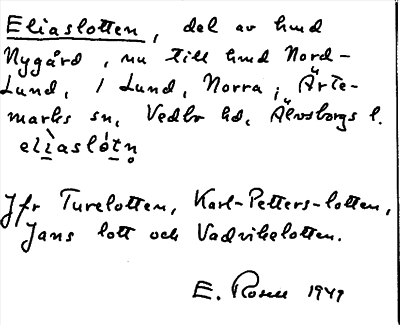 Eliaslotten, del av hmd
Nygård, nu till hmd Nord-
Lund, / Lund, Norra, Ärte-
marks sn, Vedbo hd, Älvsborgs l.
elìaslót̠n̥
Jfr Turelotten, Karl-Petters-lotten,
Jans lott och Vadvikelotten.
E. Rosell 1949